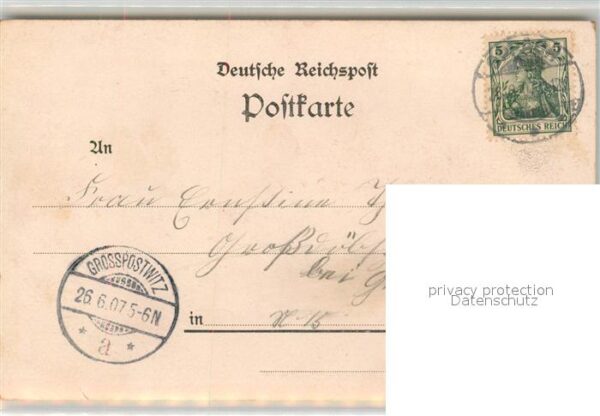 Deutsche Reichspost
Postkarte
5 5
DEUTSCHES REICH
An
Frau Ernstine
Großdöbs
bei G
in N 15
GROSSPOSTWITZ
26.6.07.5-6N
* a *
privacy protection
Datenschutz